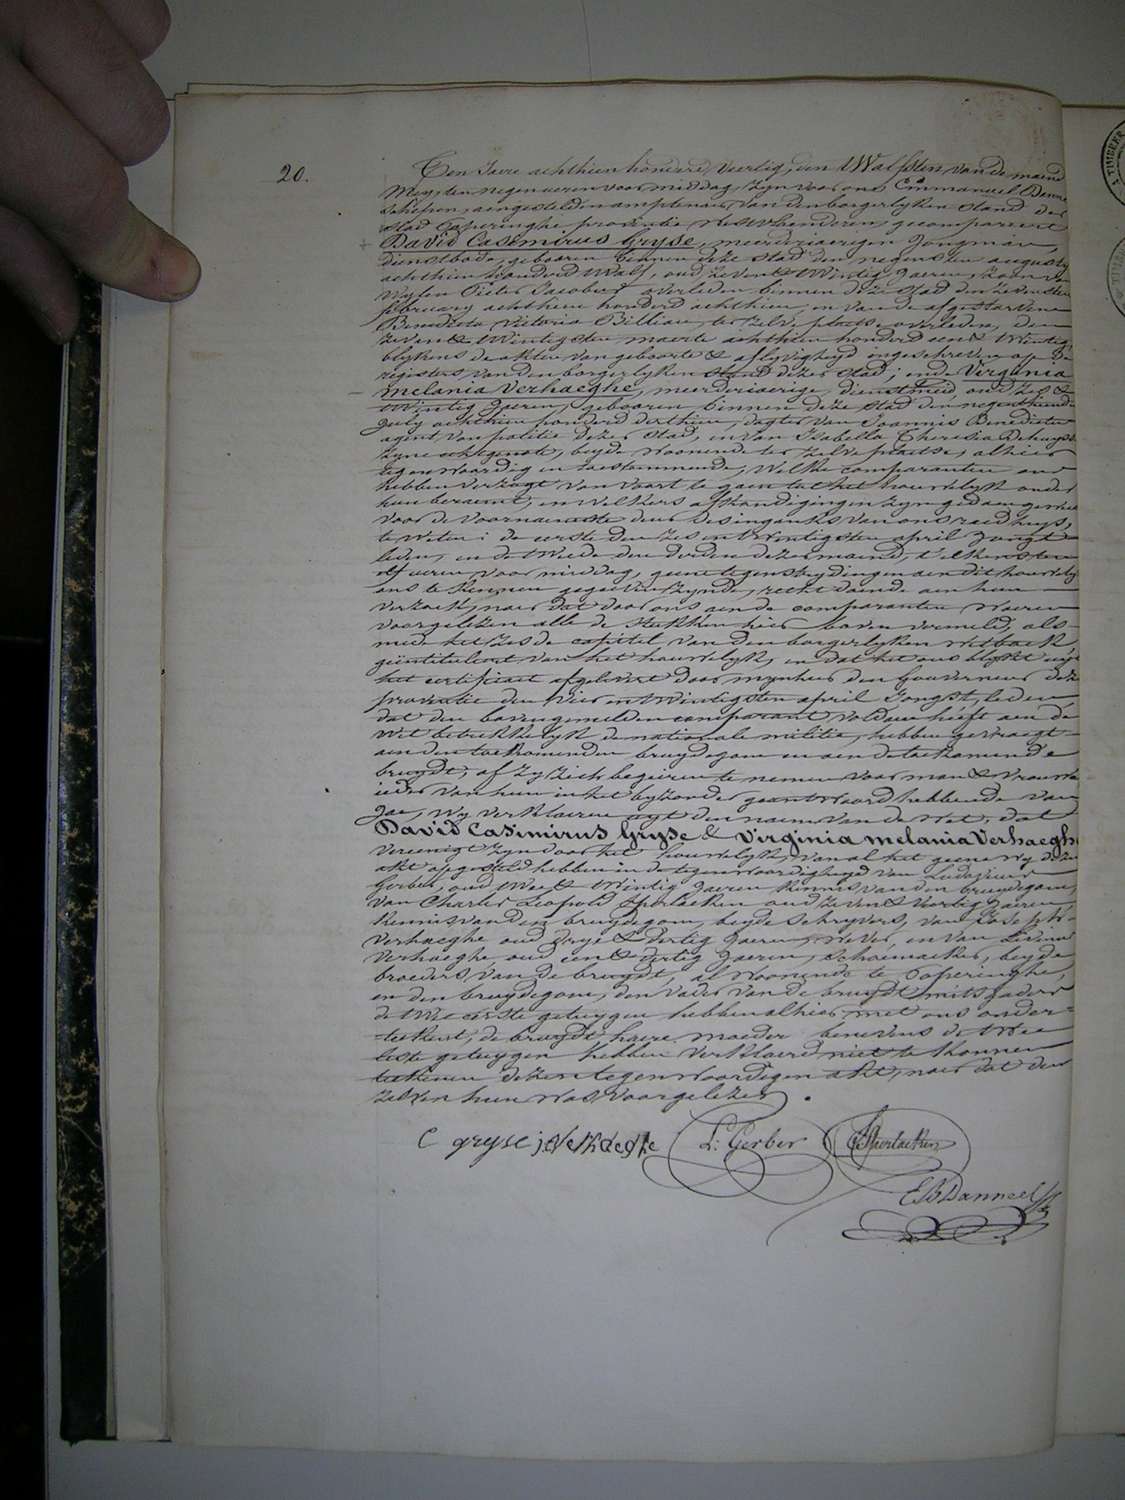 20.
Ten Jaere achthien honderd veertig, den Twalfsten van de maend
Mey, ten negen ueren voor middag, zyn voor ons Emmanuel Danne
Schepen, aengestelden amptenaer van den borgerlyken stand der
stad Poperinghe, provintie Westvlaenderen, gecompareert
David Casimirus Gryse, meerderjaerigen Jongman,
dienstbode, gebooren binnen deze stad den negensten augusty
achthien honderd twalf, oud zeven & twintig Jaeren, zoon van
wylen Pieter Jacobus overleden binnen deze stad den
february achthien honderd achthien, en van de afgestorvene
Benedicta Victoria Billiau, ter zelve plaetse overleden, den
zeven & twintigsten maerte achthien honderd een & twintig,
blykens de akten van geboorte & aflyvigheyd ingeschreven op de
registers van den borgerlyken stand dezer stad; ende Virginia
melania Verhaeghe, meerderjaerige, dienstmeid, oud zes &
twintig Jaeren, gebooren binnen deze stad den negenthiende
July achthien honderd derthien, dogter van Joannis Benedictus
agent van politie dezer stad, en van Isabella Theresia
zyne echtgenote, beyde woonende ter zelve plaetse, alhier
tegenwoordig en toestemmende, welke comparanten ons
hebben verzogt van voort te gaen tot het houwelyk onder
hun beraemt, en welkers afkondigingen zyn gedaen geweest
voor de voornaemste deur des inganks van ons raedhuys,
te weten: de eerste den zes en twintigsten april Jongst
leden, en de tweede den derden dezer maend, t'elkens ten
elf ueren voor middag, geene tegenstrydingen aen dit houwelyk
ons te kennen gegeven zynde, recht doende aen hun
verzoek, naer dat door ons aen de comparanten waeren
voorgelezen alle de stukken hier boven vermeld, als
med het zesde capittel van den borgerlyken wetboek
geïntituleert van het houwelyk, en dat het ons blykt uyt
het certificaet afgelevert door mynheer den Gouverneur dezer
provintie den vier en twintigsten april Jongst, leden,
dat den bovengemelden comparant voldaen heeft aen de
wet betrekkelyk de nationale militie, hebben gevraegt
aen den toekomenden bruydegom en aen de toekomende
bruydt, of zy zich begeiren te nemen voor man & vrouw
ieder van hun in het byzonder geantwoord hebbende van
Jae, wy verklaeren uyt den naem van de wet, dat
David Casimirus Gryse & Virginia melania Verhaeghe
vereenigt zyn door het houwelyk, van al het geene wy deze
akt opgesteld hebben in de tegenwoordigheyd van Ludovicus
Gerber, oud twee & twintig Jaeren kennis van den bruydegom,
van Charles Leopold Sporlacken oud zeven & veertig Jaeren,
kennis van den bruydegom, beyde schryvers, van Joseph
Verhaeghe oud drye & dertig Jaeren, wever, en van Livinus
Verhaeghe oud een & dertig Jaeren, schoenmaeker, beyde
broeders van de bruydt, al woonende te Poperinghe,
en den bruydegom, den vader van de bruydt, mitsgaders
de twee eerste getuygen hebben alhier met ons onder=
=teekent, de bruydt haere moeder benevens de twee
leste getuygen hebben verklaerd niet te konnen
teekenen dezen tegenwoordigen akt, naer dat den
zelven hun was voorgelezen.
C gryse j Verhaeghe L. Gerber Sporlacken
E B Danneel